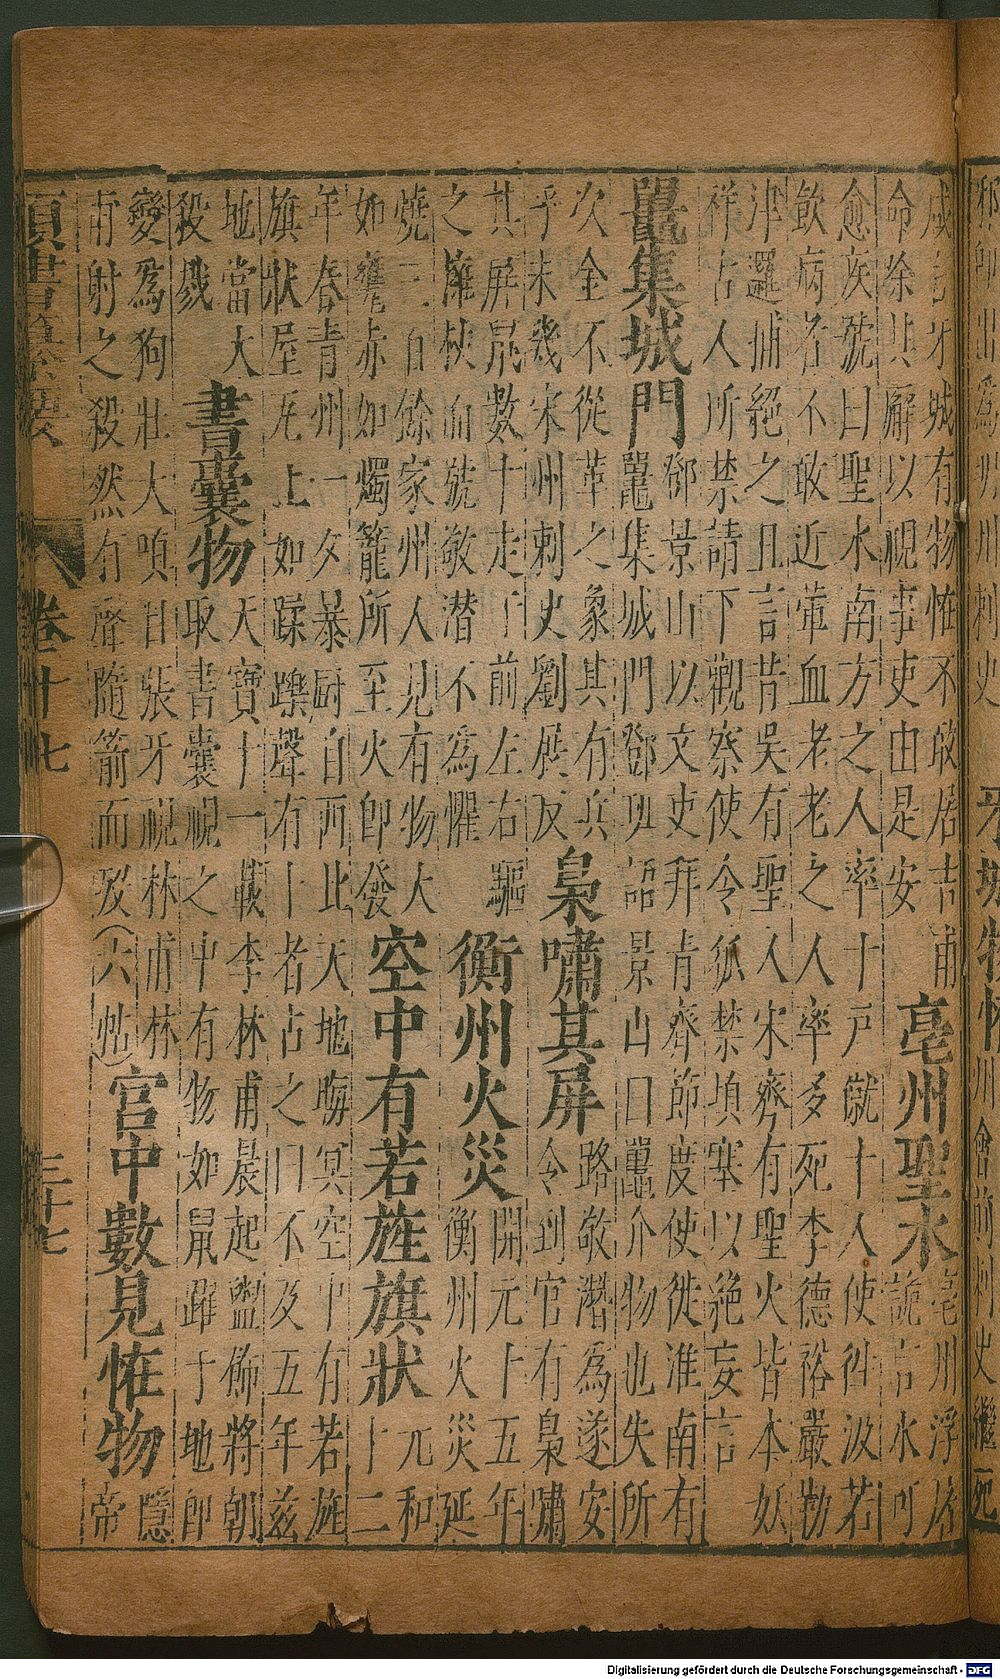 邪即出為州刺史
牙城物怪
州會前刺史繼死
咸言牙城有物怪不敢居吉甫
命除其廨以視事吏由是安
亳州聖水
亳州浮屠
詭言水可
愈疾號曰聖水南方之人率十戶僦十人使往汲若
飲病者不敢近葷血老老之人率多死李德裕嚴勒
津邏捕絕之且言昔吳有聖人宋齊有聖火皆本妖
祥古人所禁請下觀察使令狐禁填塞以絕妄言
鼉集城門
鄧景山以文吏拜青齊節度使徙淮南有
鼉集城門鄧班語景山曰鼉介物也失所
次金不從革之象其有兵
乎未幾宋州刺史劉展反
梟嘯其屏
路敬潛為遂安
令到官有梟嘯
其屏鼠數十走于前左右驅
之擁杖而號敬潛不為懼
衡州火災
開元十五年
衡州火災延
燒三百餘家州人見有物大
如甕赤如燭籠所至火即發
空中有若旌旗狀
元和
十二
年春青州一夕暴厨自西北天地晦冥空中有若旌
旗狀屋瓦上如蹂躒聲有卜者占之曰不及五年茲
地當大
殺戮
書囊物
天寶十一載李林甫晨起盥飾將朝
取書囊視之中有物如鼠躍于地即
變為狗壯大嗔目張牙視林甫林
甫射之殺然有聲隨箭而歿(六帖)
宮中數見怪物
隱
帝
類書纂要 卷十七 三十七
Digitalisierung gefördert durch die Deutsche Forschungsgemeinschaft - DFG